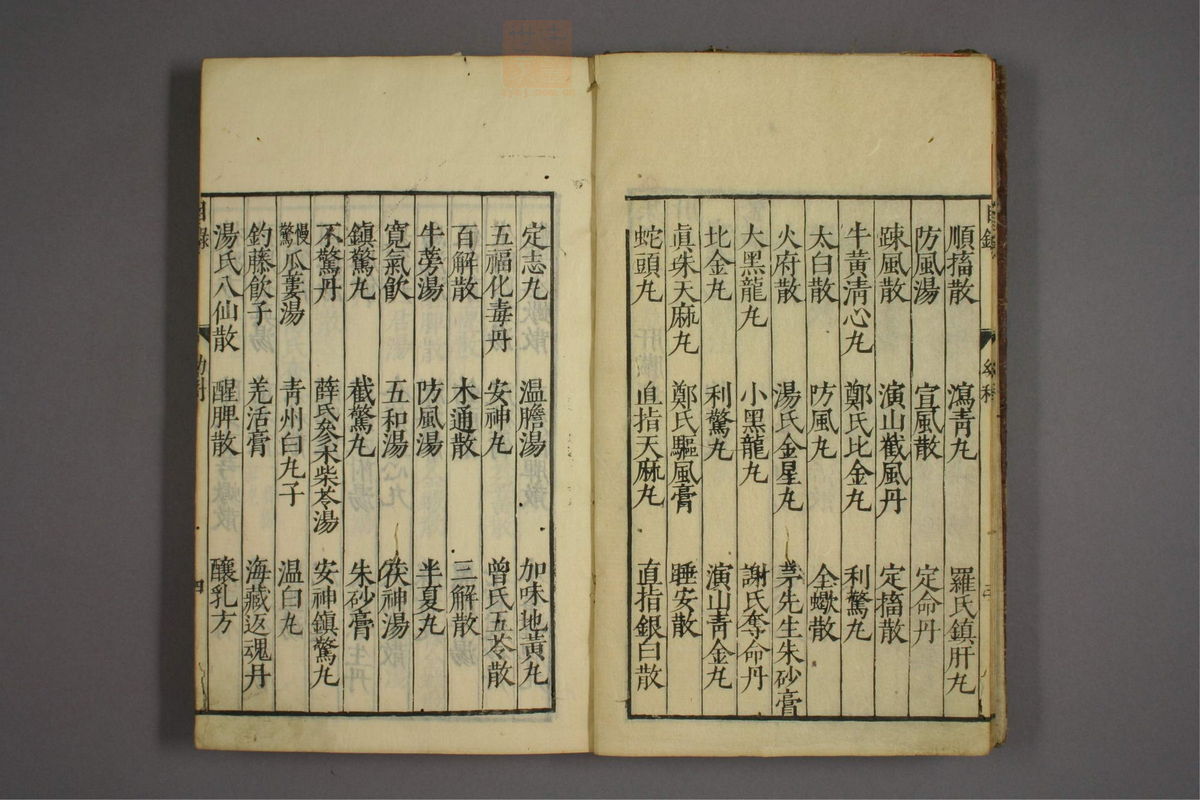 順搐散 瀉青丸 羅氏鎮肝丸
防風湯 宣風散 定命丹
踈風散 演山截風丹 定搐散
牛黃清心丸 鄭氏比金丸 利驚丸
太白散 防風丸 全蠍散
火府散 湯氏金星丸 茅先生朱砂膏
大黑龍丸 小黑龍丸 謝氏奪命丹
比金丸 利驚丸 演山青金丸
眞珠天麻丸 鄭氏驅風膏 睡安散
蛇頭丸 直指天麻丸 直指銀白散
定志丸 温膽湯 加味地黃丸
五福化毒丹 安神丸 曾氏五苓散
百解散 木通散 三解散
牛蒡湯 防風湯 半夏丸
寬氣飲 五和湯 茯神湯
鎮驚丸 截驚丸 朱砂膏
不驚丹 薛氏參术柴苓湯 安神鎮驚丸
慢驚瓜蔞湯 青州白丸子 温白丸
釣藤飲子 羌活膏 海藏返魂丹
湯氏八仙散 醒脾散 釀乳方
目錄 幼科 四